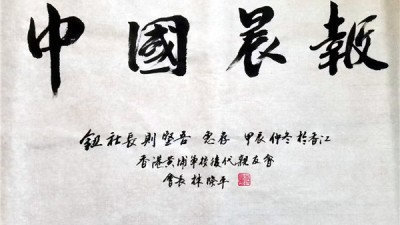 中國晨報
鈕社長則堅吾 惠存 甲辰仲冬於香江
香港黃埔軍校後代親友會
會長 林際平